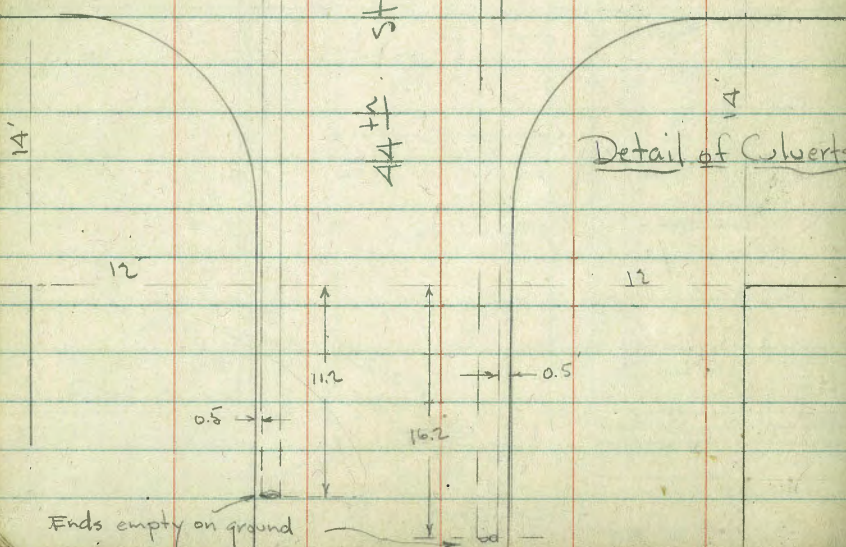 44th St
14'
14'
Detail of Culverts
12'
12
11.2
0.5'
0.5
16.2
Ends empty on ground